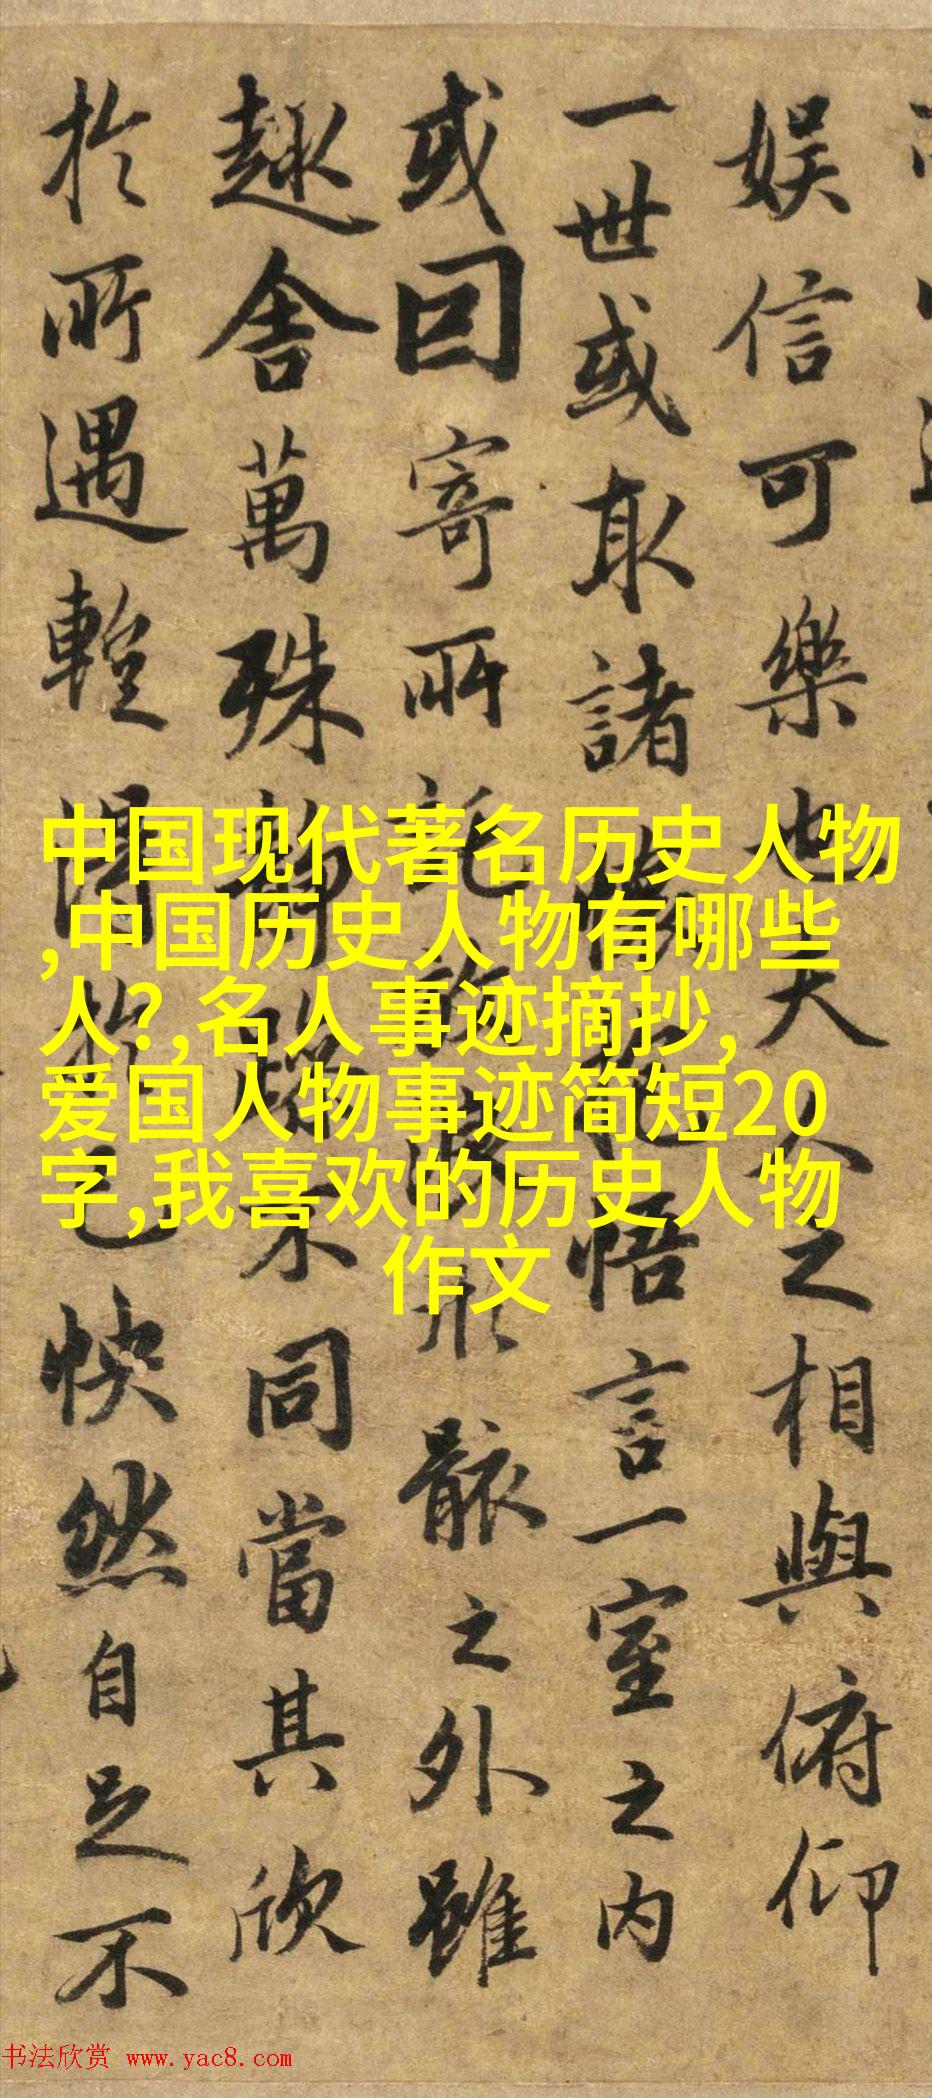 娛信可樂也夫人之相與俯仰
一世或取諸懷抱悟言一室之内
或因寄所託放浪形骸之外雖
趣舍萬殊靜躁不同當其欣
於所遇得於己怏然自足不
中国现代著名历史人物
,中国历史人物有哪些
人?,名人事迹摘抄,
爱国人物事迹简短20
字,我喜欢的历史人物
作文
书法欣赏 www.yac8.com